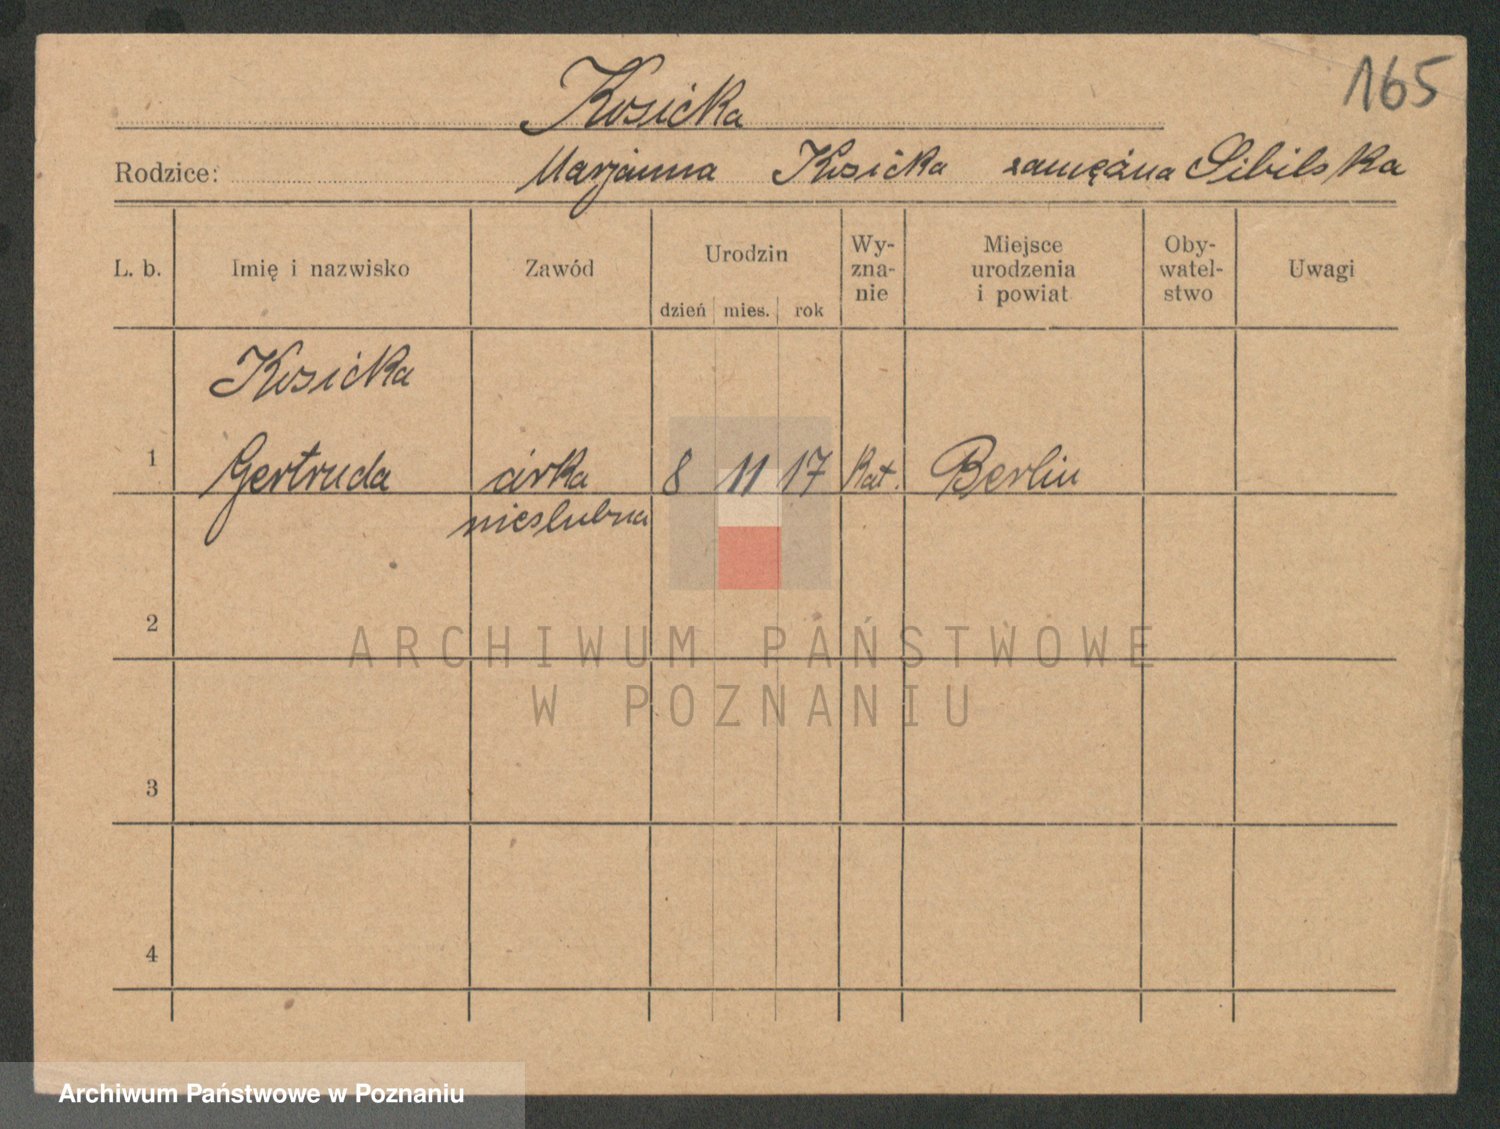 165
Kosicka
Rodzice: Marjanna Kosicka zamężna Sibilska
L. b. Imię i nazwisko Zawód Urodzin dzień mies. rok Wy-zna-nie Miejsce urodzenia i powiat Oby-watel-stwo Uwagi
Kosicka
1 Gertruda córka 8 11 17 Kat. Berlin
nieslubna
2
ARCHIWUM PAŃSTWOWE
W POZNANIU
3
4
Archiwum Państwowe w Poznaniu